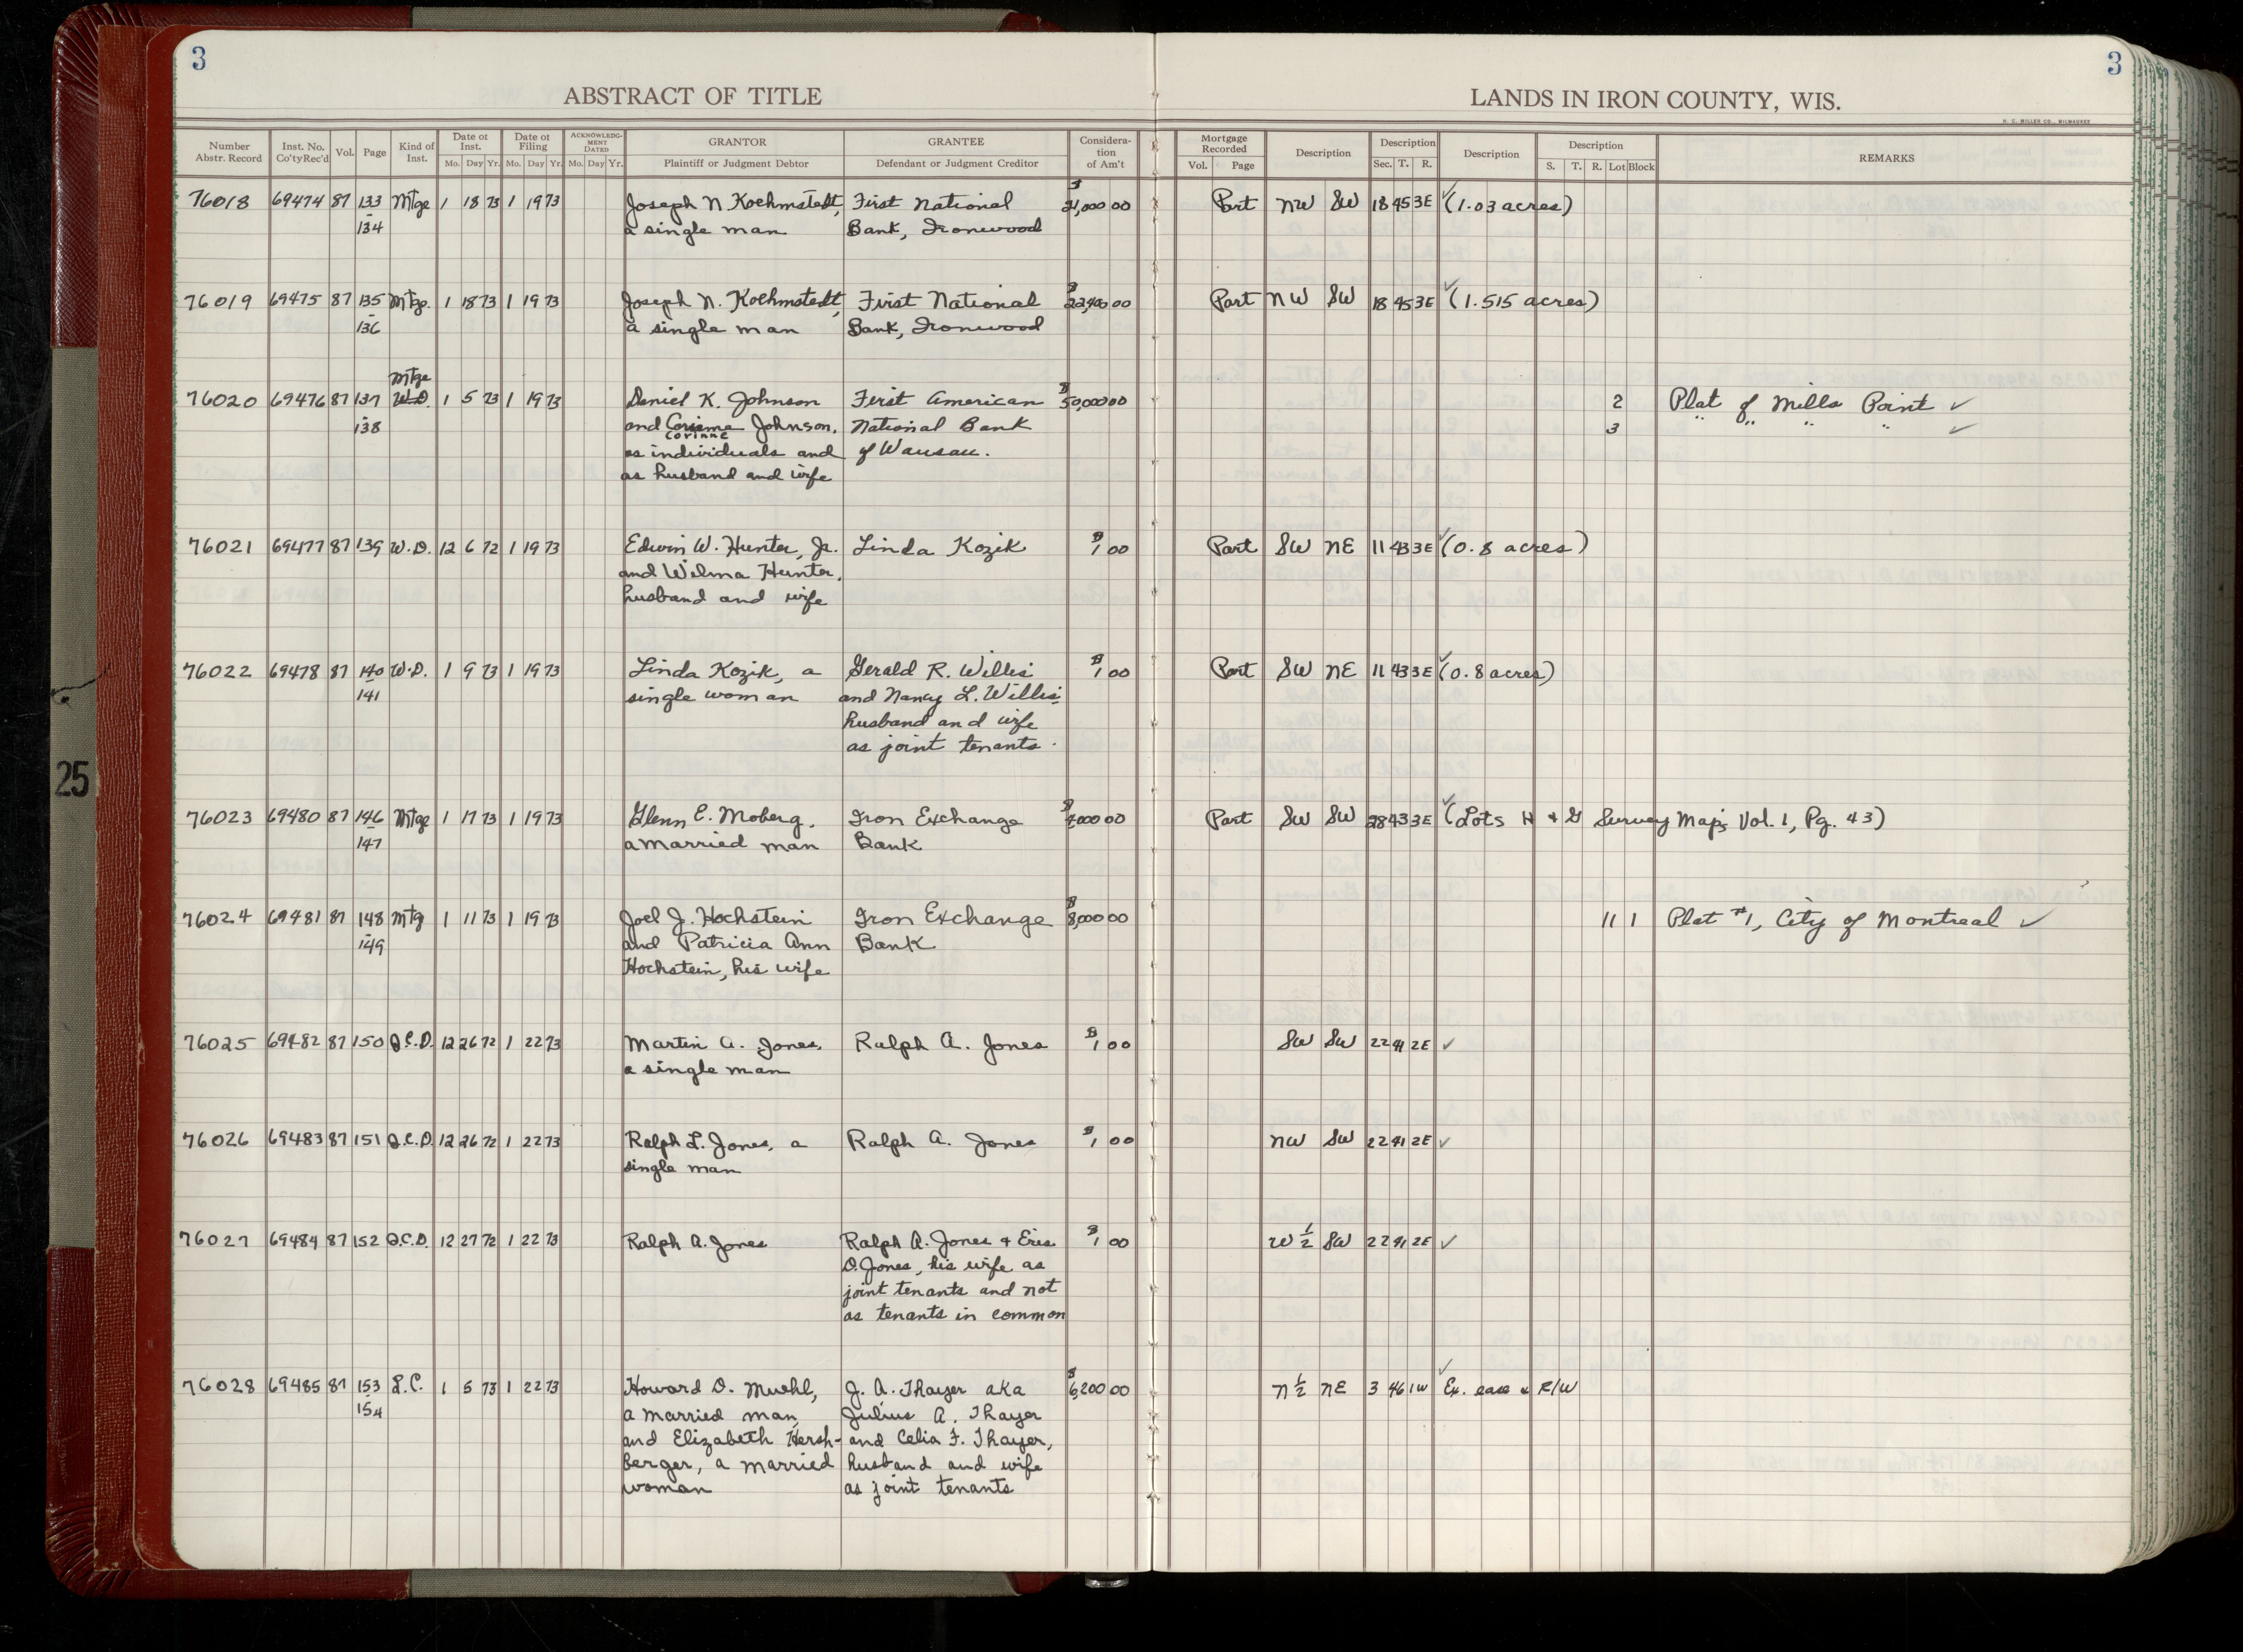 3
3
ABSTRACT OF TITLE
LANDS IN IRON COUNTY, WIS.
H. C. MILLER CO., MILWAUKEE
Number Abstr. Record Inst. No. Co'ty Rec'd Vol. Page Kind of Inst. Date of Inst. Mo. Day Yr. Date of Filing Mo. Day Yr. ACKNOWLEDGMENT DATED Mo. Day Yr. GRANTOR Plaintiff or Judgment Debtor GRANTEE Defendant or Judgment Creditor Consideration of Am't Mortgage Recorded Vol. Page Description Description Sec. T. R. Description Description S. T. R. Lot Block REMARKS
76018 69474 87 133 Mtge 1 18 73 1 19 73 Joseph N Koehmstedt, First National $ 21,000 00 Part NW SW 18 45 3E ✓ (1.03 acres)
- 134 a single man Bank, Ironwood
76019 69475 87 135 Mtge. 1 18 73 1 19 73 Joseph N. Koehmstedt, First National $ 22,400 00 Part NW SW 18 45 3E ✓ (1.515 acres)
- 136 a single man Bank, Ironwood
Mtge
76020 69476 87 137 W.D. 1 5 73 1 19 73 Daniel K. Johnson First American $ 50,000 00 2 Plat of Mills Point ✓
- 138 and Johnson, National Bank 3 " " " " ✓
Corinne
as individuals and of Wausau.
as husband and wife
76021 69477 87 139 W.D. 12 6 72 1 19 73 Edwin W. Hunter, Jr. Linda Kozik $ 1 00 Part SW NE 11 43 3E ✓ (0.8 acres)
and Wilma Hunter,
husband and wife
76022 69478 87 140 W.D. 1 9 73 1 19 73 Linda Kozik, a Gerald R. Willis $ 1 00 Part SW NE 11 43 3E ✓ (0.8 acres)
- 141 single woman and Nancy L. Willis,
husband and wife
as joint tenants.
76023 69480 87 146 Mtge 1 17 73 1 19 73 Glenn E. Moberg, Iron Exchange $ 4,000 00 Part SW SW 28 43 3E ✓ (Lots H & G Survey Maps Vol. 1, Pg. 43)
- 147 a married man Bank
76024 69481 87 148 Mtg 1 11 73 1 19 73 Joel J. Hochstein Iron Exchange $ 8,000 00 11 1 Plat #1, City of Montreal ✓
- 149 and Patricia Ann Bank
Hochstein, his wife
76025 69482 87 150 Q.C.D. 12 26 72 1 22 73 Martin A. Jones, Ralph A. Jones $ 1 00 SW SW 22 41 2E ✓
a single man
76026 69483 87 151 Q.C.D. 12 26 72 1 22 73 Ralph L. Jones, a Ralph A. Jones $ 1 00 NW SW 22 41 2E ✓
single man
76027 69484 87 152 Q.C.D. 12 27 72 1 22 73 Ralph A. Jones Ralph A. Jones & $ 1 00 W ½ SW 22 41 2E ✓
D. Jones, his wife as
joint tenants and not
as tenants in common
76028 69485 87 153 L.C. 1 5 73 1 22 73 Howard D. Muehl, J. A. Thayer aka $ 6,200 00 N ½ NE 3 46 1W ✓ Ex. ease & R/W
- 154 a married man, Julius A. Thayer
and Elizabeth Hersh- and Celia F. Thayer,
berger, a married husband and wife
woman as joint tenants
25